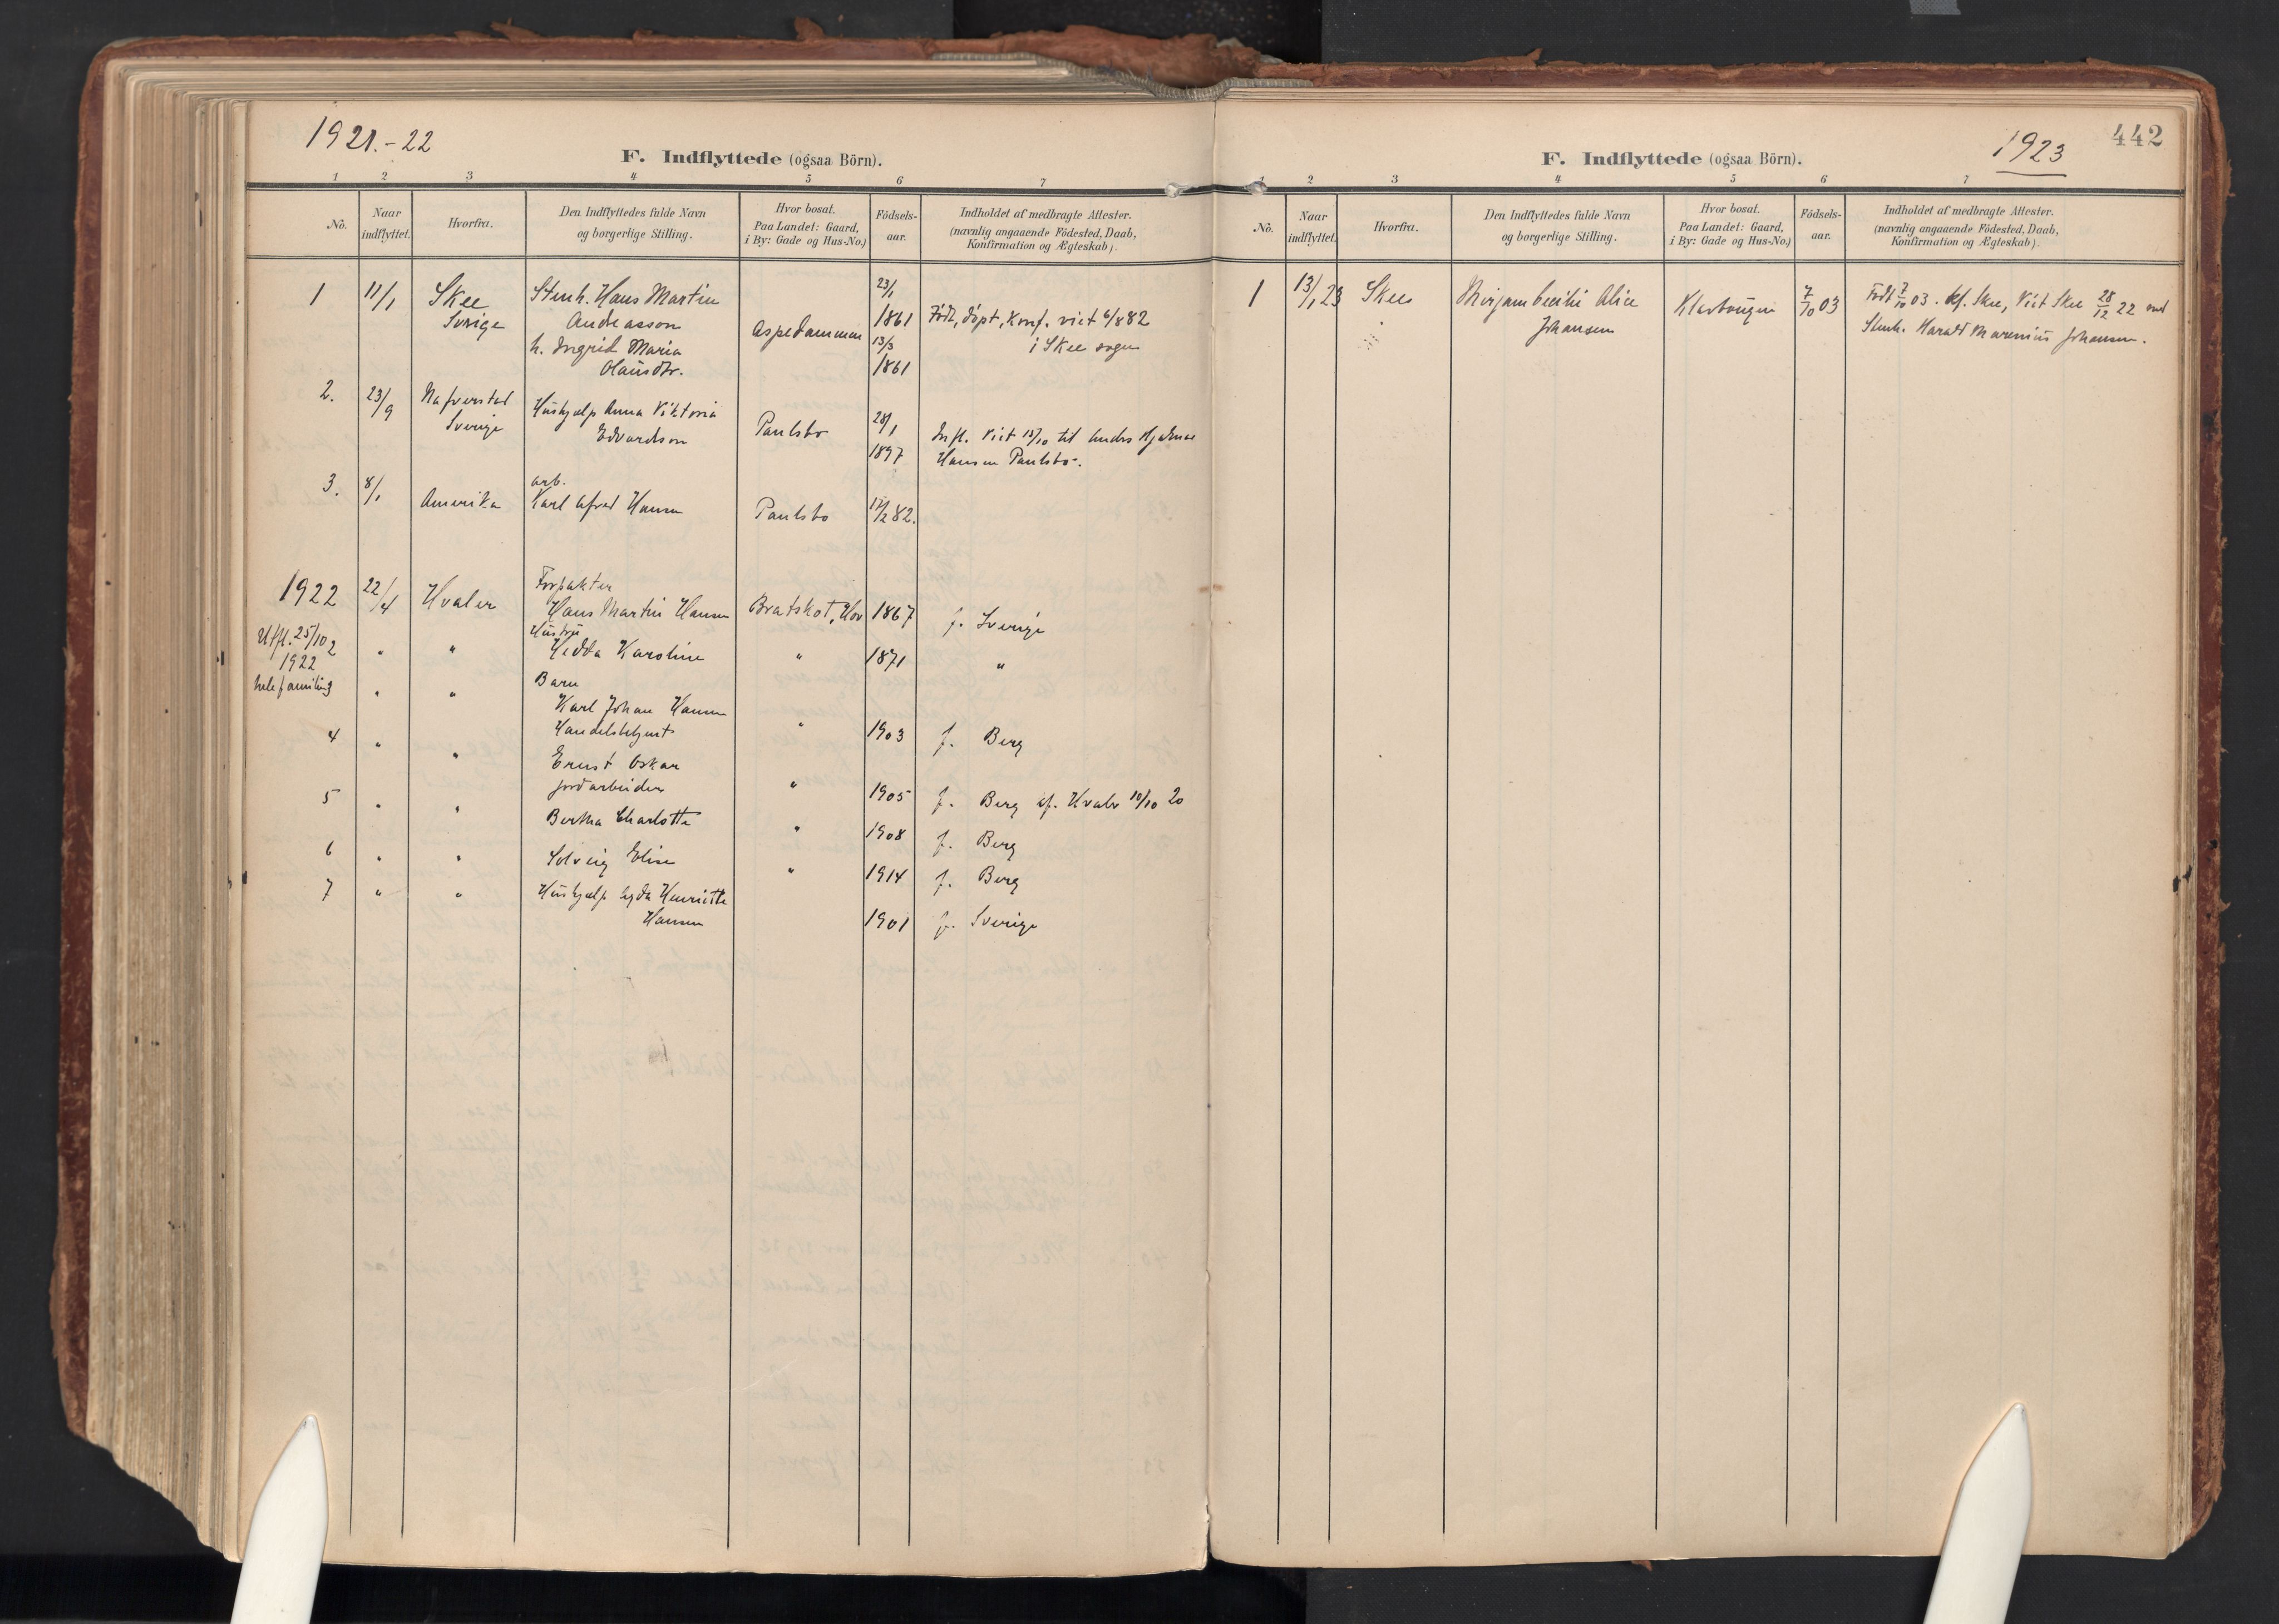 1921.-22
F. Indflyttede (ogsaa Börn).
1 2 3 4 5 6 7
No.
Naar indflyttet.
Hvorfra.
Den Indflyttedes fulde Navn og borgerlige Stilling.
Hvor bosat. Paa Landet: Gaard, i By: Gade og Hus-No.)
Födsels-aar.
Indholdet af medbragte Attester. (navnlig angaaende Födested, Daab, Konfirmation og Ægteskab).
1 11/1 Skee Stenh. Hans Martin 23/1
Sverige Andeasson Aspedammen 1861 Født, döpt, Konf. viet 6/8 82
h. Ingrid Maria 13/3 i Skee sogn
Olausdtr. 1861
2. 23/9 Nafverstad Hushjælp Anna Viktoria 28/1
Sverige Edvardson Paulsbo 1897 Infl. Viet 15/10 til Anders Hjalmar
Hansen Paulsbo.
3. 8/1 arb.
Amerika Karl Afred Hansen Paulsbo 17/2 82.
1922 22/4 Hvaler Forpakter
Hans Martin Hansen Bratskot, Hov 1867 f. Sverige
Utfl. 25/10 2 " " Hustru
Hedda Karoline " 1871 "
1922
hele familien 3 " " Barn
Karl Johan Hansen
Handelsbetjent " 1903 f. Berg
4 " " Ernst Oskar
jordarbeider " 1905 f. Berg kf. Hvaler 10/10 20
5 " " Bertha Charlotte " 1908 f. Berg
6 " " Solveig Elise " 1914 f. Berg
7 " " Hushjælp Henriette
Hansen 1901 f. Sverige
F. Indflyttede (ogsaa Börn).
1923
442
1 2 3 4 5 6 7
No.
Naar indflyttet.
Hvorfra.
Den Indflyttedes fulde Navn og borgerlige Stilling.
Hvor bosat. Paa Landet: Gaard, i By: Gade og Hus-No.)
Födsels-aar.
Indholdet af medbragte Attester. (navnlig angaaende Födested, Daab, Konfirmation og Ægteskab).
1 13/1 23 Skee Mirjam Cecilie Alice 7/10 03 Født 7/10 03. kf. Skee, Viet Skee 28/12 22 med
Johansen Stenh. Harald Marenius Johansen.